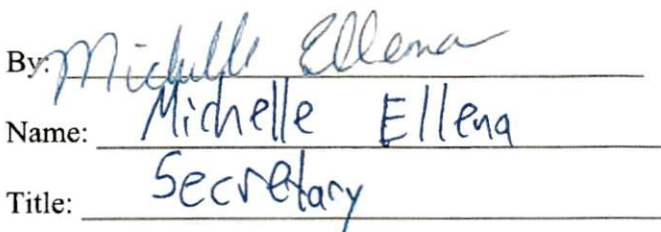 By: Michelle Ellena
Name: Michelle Ellena
Title: Secretary